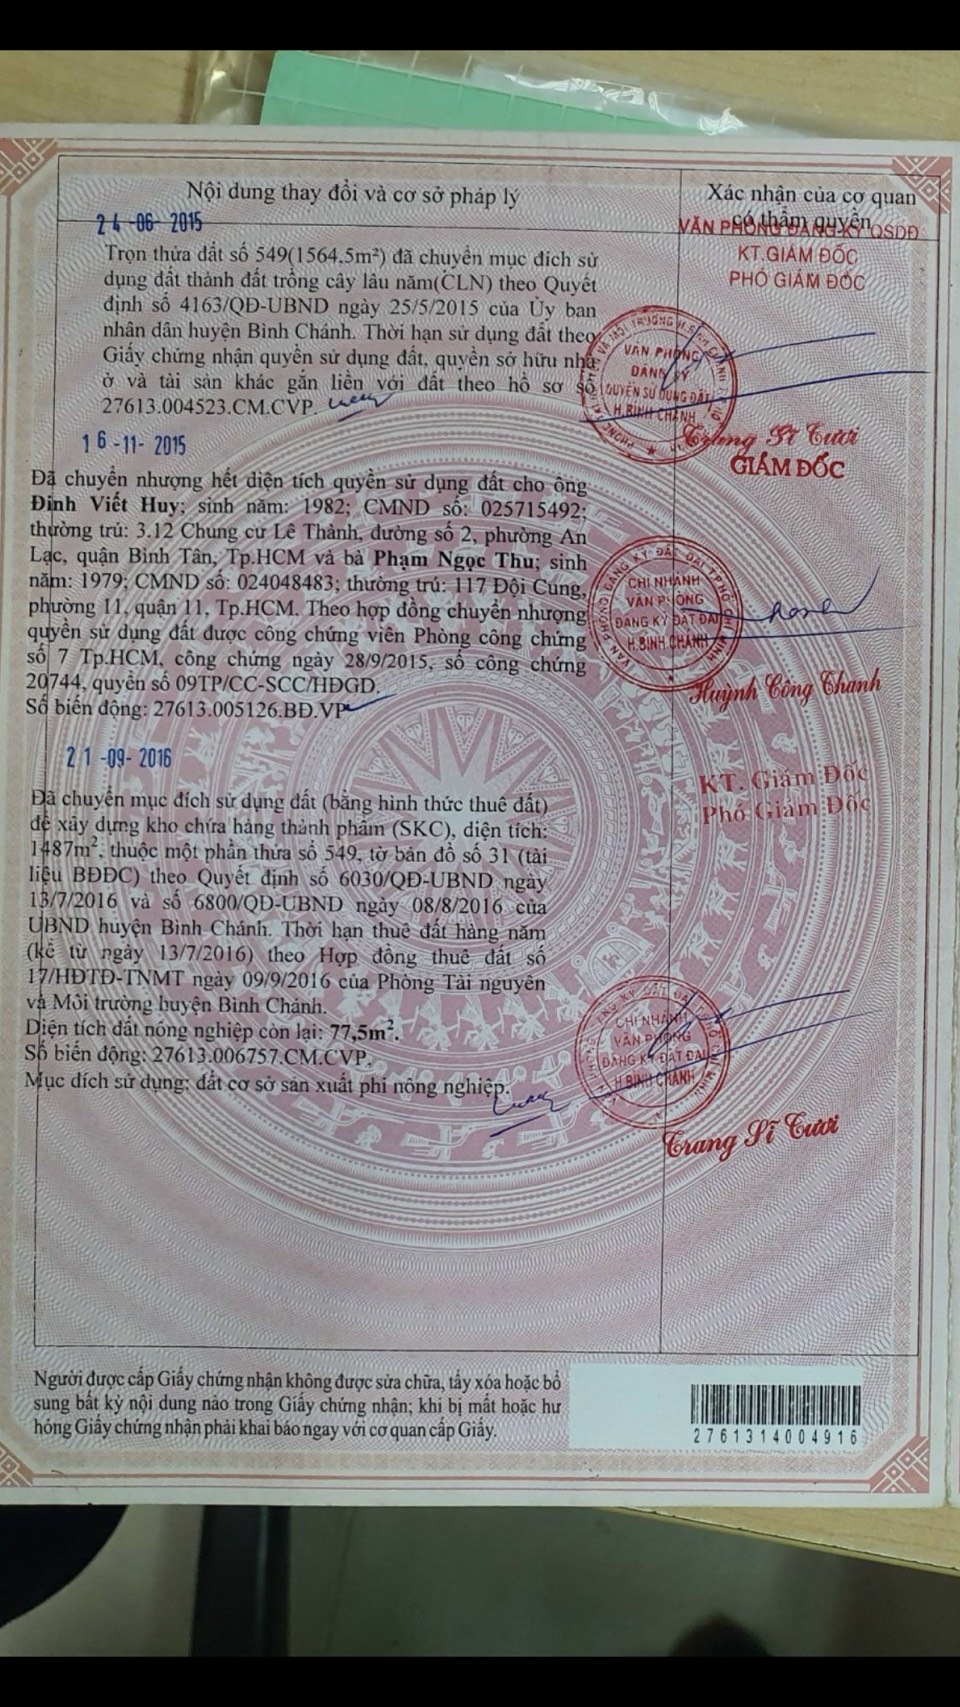 Nội dung thay đổi và cơ sở pháp lý
Xác nhận của cơ quan
có thẩm quyền
24-06-2015
VĂN PHÒNG ĐĂNG KÝ QSDĐ
KT.GIÁM ĐỐC
PHÓ GIÁM ĐỐC
Trọn thửa đất số 549(1564.5m²) đã chuyển mục đích sử
dụng đất thành đất trồng cây lâu năm(CLN) theo Quyết
định số 4163/QĐ-UBND ngày 25/5/2015 của Ủy ban
nhân dân huyện Bình Chánh. Thời hạn sử dụng đất theo
Giấy chứng nhận quyền sử dụng đất, quyền sở hữu nhà
ở và tài sản khác gắn liền với đất theo hồ sơ số
27613.004523.CM.CVP.
VĂN PHÒNG
ĐĂNG KÝ
QUYỀN SỬ DỤNG ĐẤT
H.BÌNH CHÁNH
Trang Sĩ Tươi
GIÁM ĐỐC
16-11-2015
Đã chuyển nhượng hết diện tích quyền sử dụng đất cho ông
Đinh Viết Huy; sinh năm: 1982; CMND số: 025715492;
thường trú: 3.12 Chung cư Lê Thành, đường số 2, phường An
Lạc, quận Bình Tân, Tp.HCM và bà Phạm Ngọc Thu; sinh
năm: 1979; CMND số: 024048483; thường trú: 117 Đội Cung,
phường 11, quận 11, Tp.HCM. Theo hợp đồng chuyển nhượng
quyền sử dụng đất được công chứng viên Phòng công chứng
số 7 Tp.HCM, công chứng ngày 28/9/2015, số công chứng
20744, quyển số 09TP/CC-SCC/HĐGD.
Số biến động: 27613.005126.BĐ.VP
CHI NHÁNH
VĂN PHÒNG
ĐĂNG KÝ ĐẤT ĐAI
H.BÌNH CHÁNH
Huỳnh Công Thanh
21-09-2016
KT. Giám Đốc
Phó Giám Đốc
Đã chuyển mục đích sử dụng đất (bằng hình thức thuê đất)
để xây dựng kho chứa hàng thành phẩm (SKC), diện tích:
1487m², thuộc một phần thửa số 549, tờ bản đồ số 31 (tài
liệu BĐĐC) theo Quyết định số 6030/QĐ-UBND ngày
13/7/2016 và số 6800/QĐ-UBND ngày 08/8/2016 của
UBND huyện Bình Chánh. Thời hạn thuê đất hàng năm
(kể từ ngày 13/7/2016) theo Hợp đồng thuê đất số
17/HĐTĐ-TNMT ngày 09/9/2016 của Phòng Tài nguyên
và Môi trường huyện Bình Chánh.
Diện tích đất nông nghiệp còn lại: 77,5m².
Số biến động: 27613.006757.CM.CVP.
Mục đích sử dụng: đất cơ sở sản xuất phi nông nghiệp.
CHI NHÁNH
VĂN PHÒNG
ĐĂNG KÝ ĐẤT ĐAI
H.BÌNH CHÁNH
Trang Sĩ Tươi
Người được cấp Giấy chứng nhận không được sửa chữa, tẩy xóa hoặc bổ
sung bất kỳ nội dung nào trong Giấy chứng nhận; khi bị mất hoặc hư
hỏng Giấy chứng nhận phải khai báo ngay với cơ quan cấp Giấy.
2761314004916